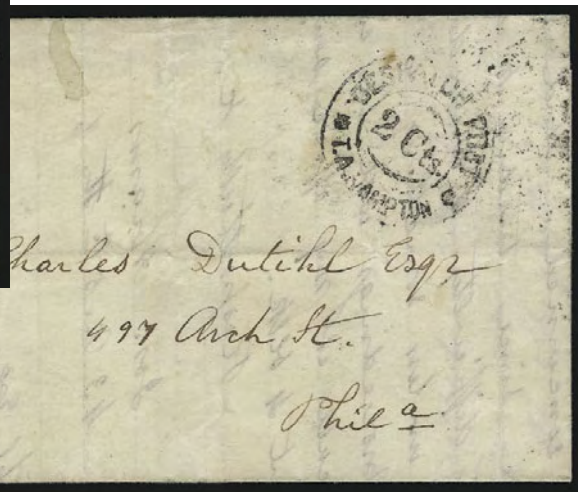 DESPATCH POST
2 Cts
T.A. HAMPTON
Charles Dutihl Esqr
497 Arch St.
Phila